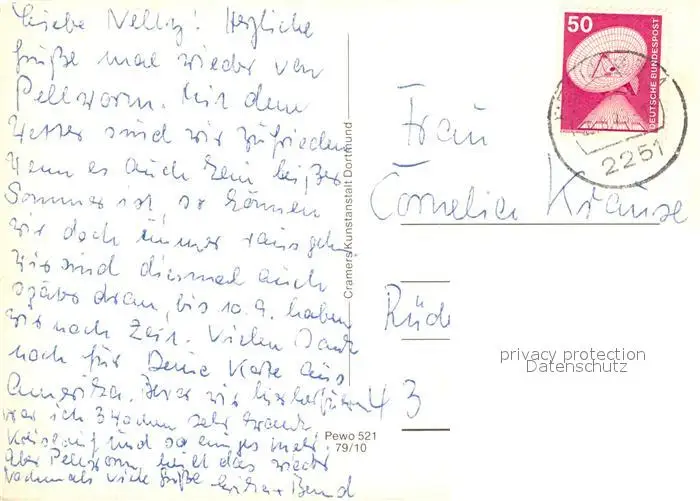 Liebe Nelly! Herzliche
Grüße mal wieder von
Pellworm. Mit dem
Wetter sind wir zufrieden
wenn es auch kein heißer
Sommer ist, so können
wir doch immer raus gehn
Wir sind diesmal auch
später dran, bis 10.9. haben
wir noch Zeit. Vielen Dank
noch für Deine Karte aus
Amerika. Bevor wir hierherfuhren
war ich 3 Wochen sehr krank
Kreislauf und so einiges mehr.
Aber Pellworm heilt das wieder
Nochmals viele Grüße + Bernd
Cramers Kunstanstalt Dortmund
Pewo 521
79/10
50
DEUTSCHE BUNDESPOST
2251
Frau
Cornelia Krause
Rüd
43
privacy protection
Datenschutz